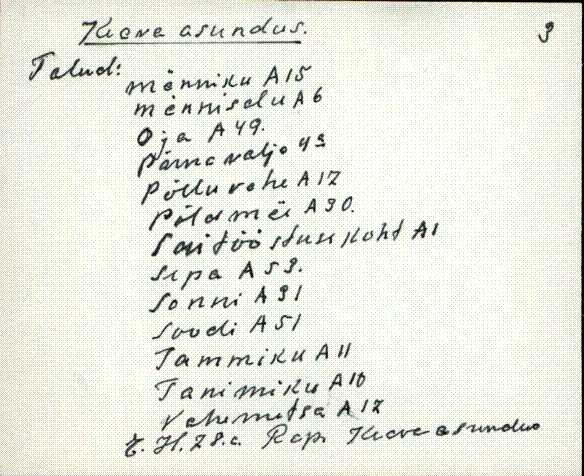 Keava asundus. 3
Talud:
Männiku A 15
Männisalu A 6
Oja A 49.
Pärnavälja 43
Põlluvahe A 17
Põldmäe A 30.
Saitööstuse koht A 1
Sepa A 53.
Sonni A 31
Soodi A 51
Tammiku A 11
Tanimiku A 10
Vahemetsa A 12
Rap. Keava asundus